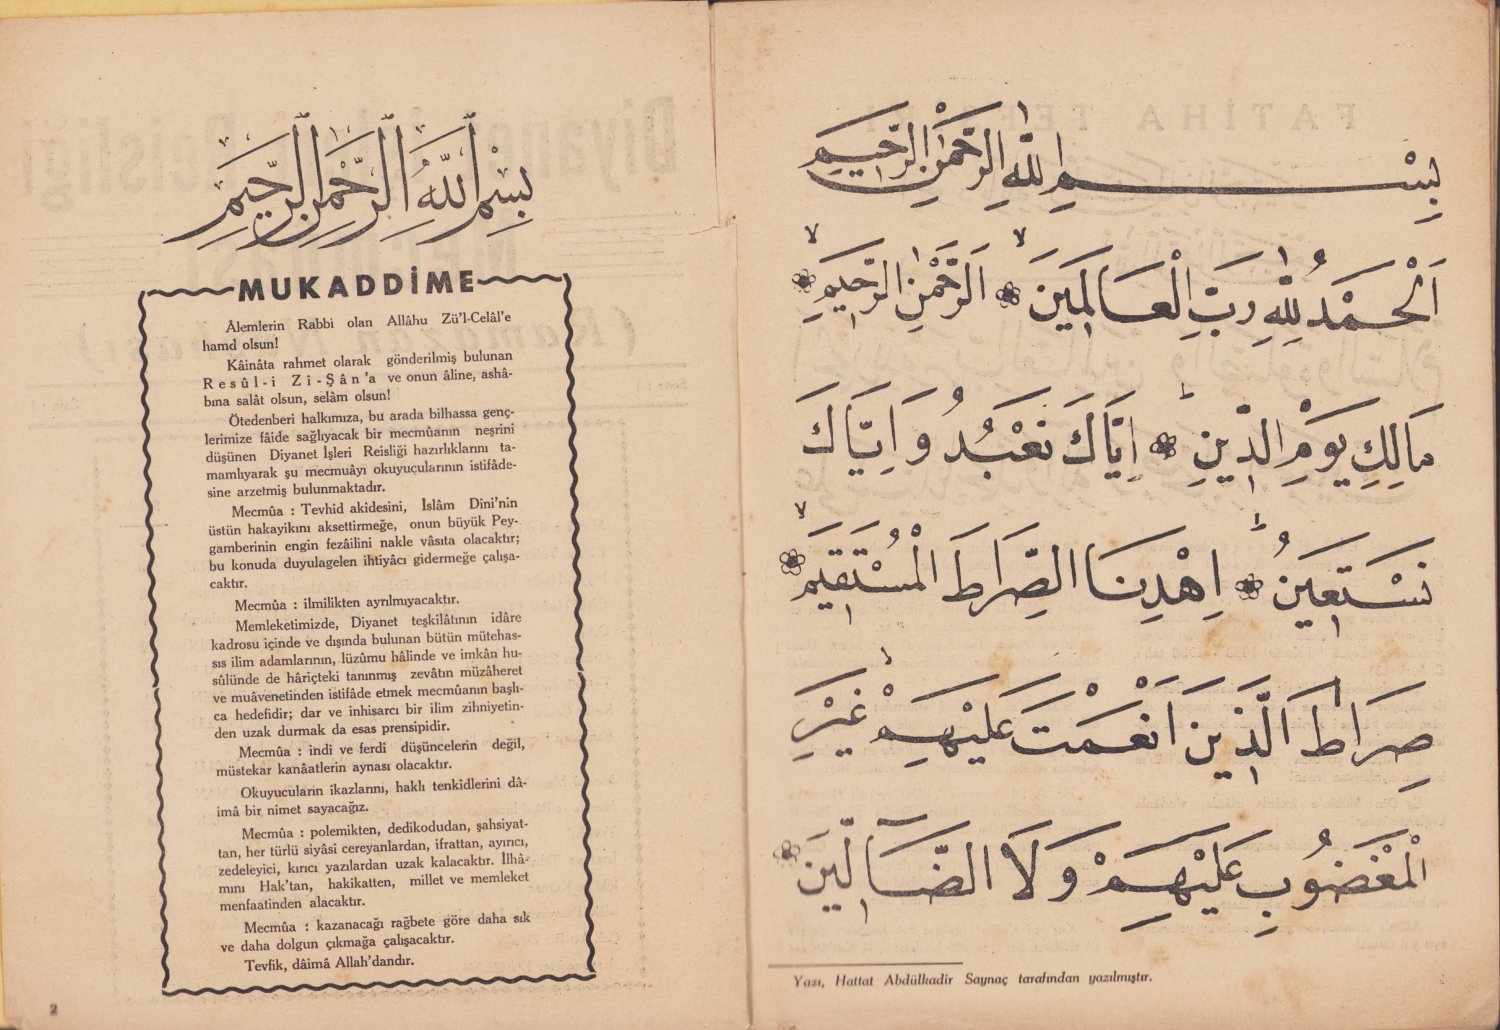 بِسْمِ اللَّهِ الرَّحْمَنِ الرَّحِيمِ
MUKADDİME
Âlemlerin Rabbi olan Allâhu Zü'l-Celâl'e
hamd olsun!
Kâinâta rahmet olarak gönderilmiş bulunan
Resûl-i Zî-Şân'a ve onun âline, ashâ-
bına salât olsun, selâm olsun!
Ötedenberi halkımıza, bu arada bilhassa genç-
lerimize fâide sağlıyacak bir mecmûanın neşrini
düşünen Diyanet İşleri Reisliği hazırlıklarını ta-
mamlıyarak şu mecmuâyı okuyucularının istifâde-
sine arzetmiş bulunmaktadır.
Mecmûa : Tevhid akidesini, İslâm Dini'nin
üstün hakayikını aksettirmeğe, onun büyük Pey-
gamberinin engin fezâilini nakle vâsıta olacaktır;
bu konuda duyulagelen ihtiyâcı gidermeğe çalışa-
caktır.
Mecmûa : ilmilikten ayrılmıyacaktır.
Memleketimizde, Diyanet teşkilâtının idâre
kadrosu içinde ve dışında bulunan bütün mütehas-
sıs ilim adamlarının, lüzûmu hâlinde ve imkân hu-
sûlünde de hâriçteki tanınmış zevâtın müzâheret
ve muâvenetinden istifâde etmek mecmûanın başlı-
ca hedefidir; dar ve inhisarcı bir ilim zihniyetin-
den uzak durmak da esas prensipidir.
Mecmûa : indî ve ferdî düşüncelerin değil,
müstekar kanâatlerin aynası olacaktır.
Okuyucuların ikazlarını, haklı tenkidlerini dâ-
imâ bir nimet sayacağız.
Mecmûa : polemikten, dedikodudan, şahsiyat-
tan, her türlü siyâsi cereyanlardan, ifrattan, ayırıcı,
zedeleyici, kırıcı yazılardan uzak kalacaktır. İlhâ-
mını Hak'tan, hakikatten, millet ve memleket
menfaatinden alacaktır.
Mecmûa : kazanacağı rağbete göre daha sık
ve daha dolgun çıkmağa çalışacaktır.
Tevfik, dâimâ Allah'dandır.
2
بِسْمِ اللّٰهِ الرَّحْمٰنِ الرَّحِيمِ
اَلْحَمْدُ لِلّٰهِ رَبِّ الْعَالَمِينَ ۙ اَلرَّحْمٰنِ الرَّحِيمِ ۙ
مَالِكِ يَوْمِ الدِّينِ ۜ اِيَّاكَ نَعْبُدُ وَاِيَّاكَ
نَسْتَعِينُ ۜ اِهْدِنَا الصِّرَاطَ الْمُسْتَقِيمَ ۙ
صِرَاطَ الَّذِينَ اَنْعَمْتَ عَلَيْهِمْ غَيْرِ
الْمَغْضُوبِ عَلَيْهِمْ وَلَا الضَّآلِّينَ
Yazı, Hattat Abdülkadir Saynaç tarafından yazılmıştır.